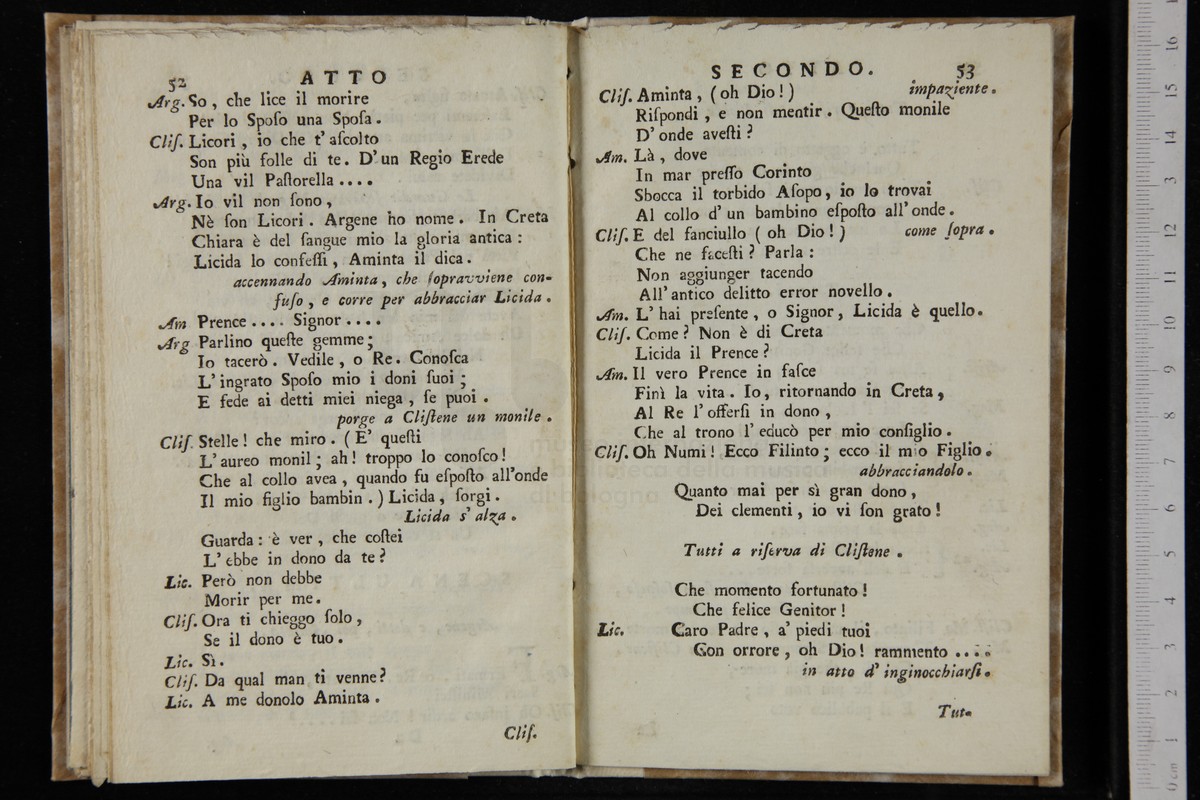 52 ATTO
Arg. So, che lice il morire
Per lo Spoſo una Spoſa.
Cliſ. Licori, io che t' aſcolto
Son più folle di te. D' un Regio Erede
Una vil Paſtorella ....
Arg. Io vil non ſono,
Nè ſon Licori. Argene ho nome. In Creta
Chiara è del ſangue mio la gloria antica:
Licida lo confeſſi, Aminta il dica.
accennando Aminta, che ſopravviene con-
fuſo, e corre per abbracciar Licida.
Am Prence .... Signor ....
Arg Parlino queſte gemme;
Io tacerò. Vedile, o Re. Conoſca
L' ingrato Spoſo mio i doni ſuoi;
E fede ai detti miei niega, ſe puoi.
porge a Cliſtene un monile.
Cliſ. Stelle! che miro. (E' queſti
L' aureo monil; ah! troppo lo conoſco!
Che al collo avea, quando fu eſpoſto all'onde
Il mio figlio bambin.) Licida, ſorgi.
Licida s' alza.
Guarda: è ver, che coſtei
L' ebbe in dono da te?
Lic. Però non debbe
Morir per me.
Cliſ. Ora ti chieggo ſolo,
Se il dono è tuo.
Lic. Sì.
Cliſ. Da qual man ti venne?
Lic. A me donolo Aminta.
Cliſ.
SECONDO. 53
Cliſ. Aminta, (oh Dio!) impaziente.
Riſpondi, e non mentir. Queſto monile
D' onde aveſti?
Am. Là, dove
In mar preſſo Corinto
Sbocca il torbido Aſopo, io lo trovai
Al collo d' un bambino eſpoſto all' onde.
Cliſ. E del fanciullo (oh Dio!) come ſopra.
Che ne faceſti? Parla:
Non aggiunger tacendo
All' antico delitto error novello.
Am. L' hai preſente, o Signor, Licida è quello.
Cliſ. Come? Non è di Creta
Licida il Prence?
Am. Il vero Prence in faſce
Finì la vita. Io, ritornando in Creta,
Al Re l' offerſi in dono,
Che al trono l' educò per mio conſiglio.
Cliſ. Oh Numi! Ecco Filinto; ecco il mio Figlio.
abbracciandolo.
Quanto mai per sì gran dono,
Dei clementi, io vi ſon grato!
Tutti a riſerva di Cliſtene.
Che momento fortunato!
Che felice Genitor!
Lic. Caro Padre, a' piedi tuoi
Gon orrore, oh Dio! rammento ....
in atto d' inginocchiarſi.
Tut.